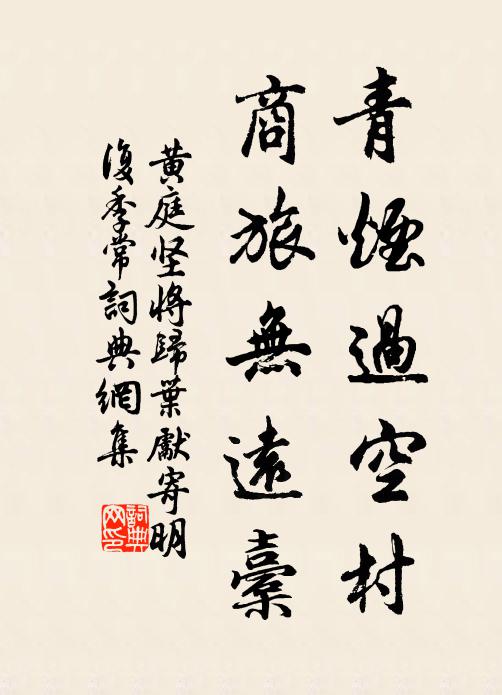 青煙過空村
商旅無遠橐
黄庭坚將歸葉獻寄明
復季常詞典網集
詞典
网印